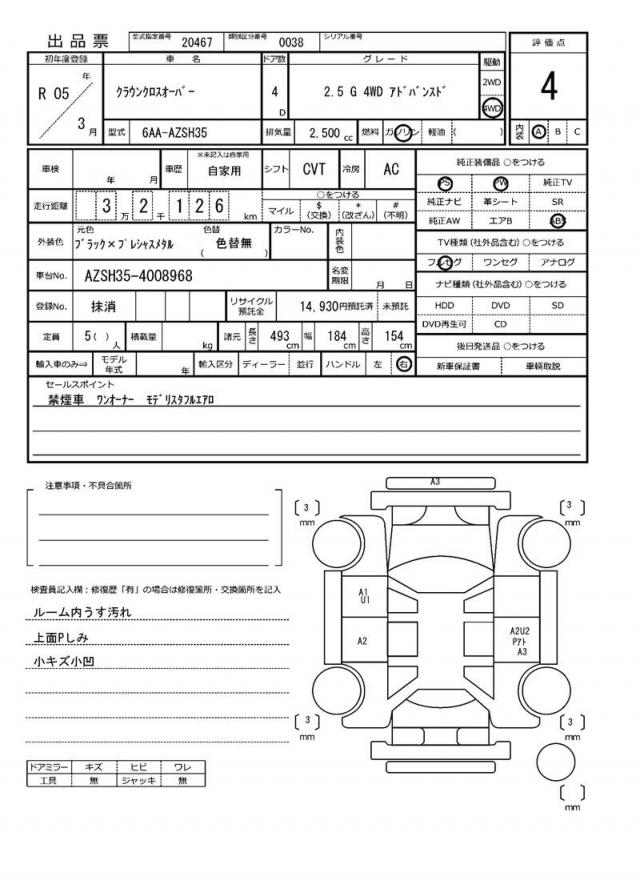 出品票 型式指定番号 20467 類別区分番号 0038 シリアル番号
初年度登録 車 名 ドア数 グレード 駆動 評価点
R 05 年 3 月 クラウンクロスオーバー 4 D 2.5 G 4WD アドバンスド 2WD 4WD 4
型式 6AA-AZSH35 排気量 2,500 cc 燃料 ガソリン 軽油 ( ) 内装 A B C
車検 年 月 車歴 ※未記入は自家用 自家用 シフト CVT 冷房 AC
走行距離 3 万 2 千 1 2 6 km ○をつける マイル $ (交換) * (改ざん) # (不明)
外装色 元色 ブラック×プレシャスメタル 色替 ( 色替無 ) カラーNo. 内装色
車台No. AZSH35-4008968 名変期限 月 日
登録No. 抹消 リサイクル預託金 14,930円預託済 未預託
定員 5( ) 人 積載量 kg 諸元 長さ 493 cm 幅 184 cm 高さ 154 cm
輸入車のみ⇒ モデル年式 年 輸入区分 ディーラー 並行 ハンドル 左 右
純正装備品 ○をつける
PS PW 純正TV
純正ナビ 革シート SR
純正AW エアB ABS
TV種類 (社外品含む) ○をつける
フルセグ ワンセグ アナログ
ナビ種類 (社外品含む) ○をつける
HDD DVD SD
DVD再生可 CD
後日発送品 ○をつける
新車保証書 車輌取説
セールスポイント
禁煙車 ワンオーナー モデリスタフルエアロ
注意事項・不具合箇所
検査員記入欄：修復歴「有」の場合は修復箇所・交換箇所を記入
ルーム内うす汚れ
上面Pしみ
小キズ小凹
ドアミラー キズ ヒビ ワレ
工具 無 ジャッキ 無
A3
[ 3 ] mm
[ 3 ] mm
A1
U1
A2
A2U2
Pアト
A3
[ 3 ] mm
[ 3 ] mm
[ ] mm